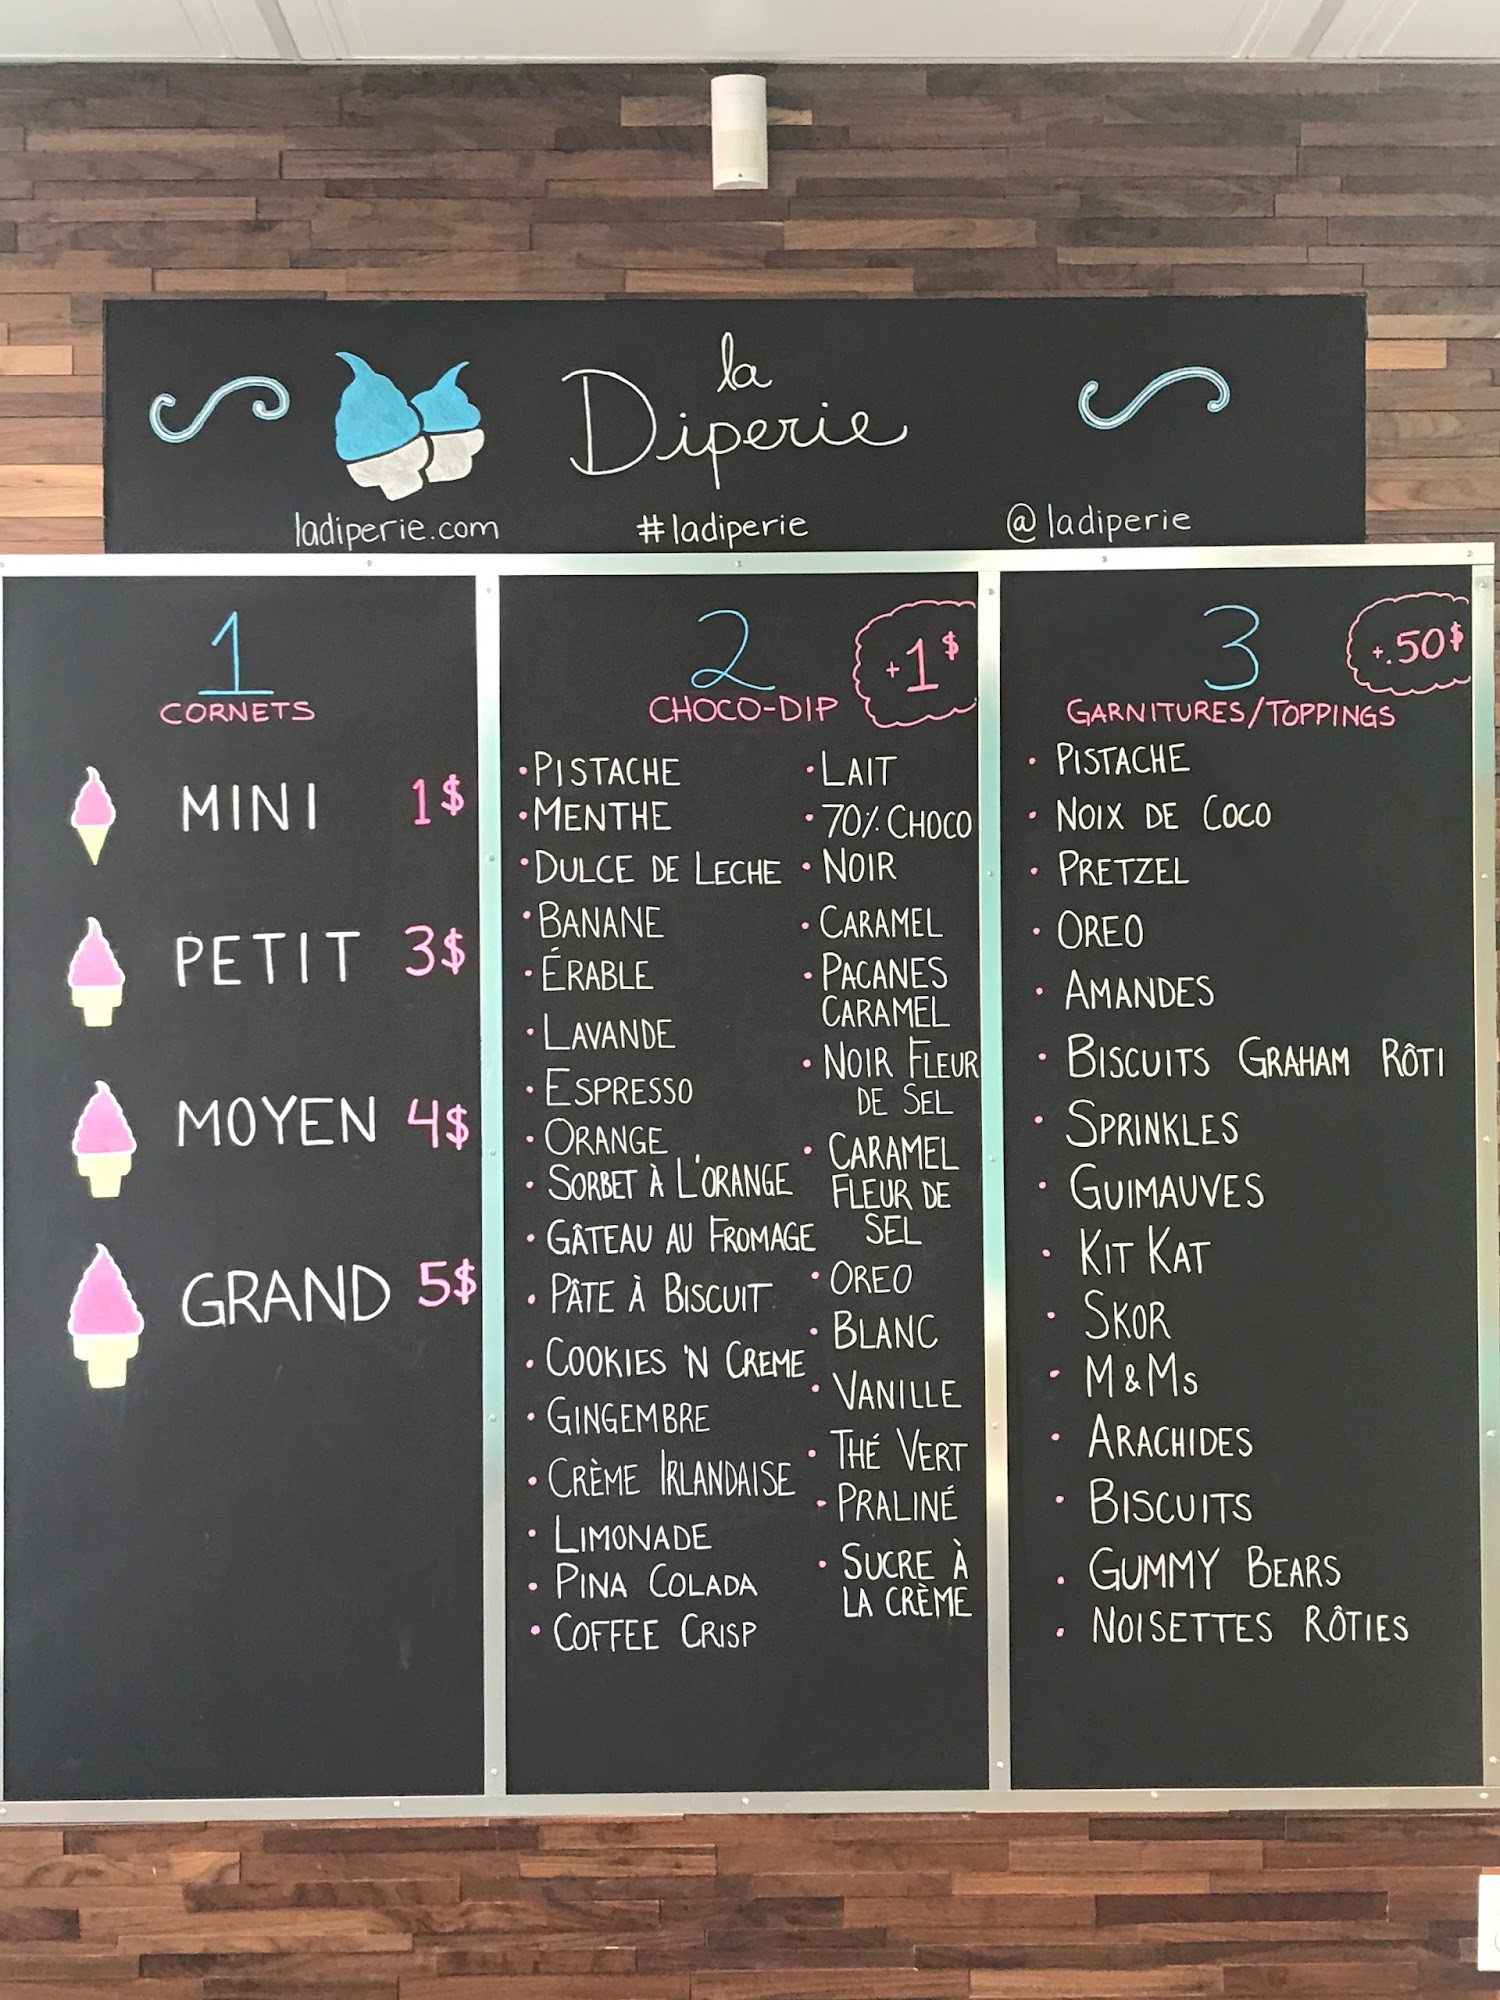 la
Diperie
ladiperie.com
#ladiperie
@ladiperie
1
CORNETS
MINI 1$
PETIT 3$
MOYEN 4$
GRAND 5$
2
+1$
CHOCO-DIP
• PISTACHE
• MENTHE
• DULCE DE LECHE
• BANANE
• ÉRABLE
• LAVANDE
• ESPRESSO
• ORANGE
• SORBET À L'ORANGE
• GÂTEAU AU FROMAGE
• PÂTE À BISCUIT
• COOKIES 'N CREME
• GINGEMBRE
• CRÈME IRLANDAISE
• LIMONADE
• PINA COLADA
• COFFEE CRISP
• LAIT
• 70% CHOCO
• NOIR
• CARAMEL
• PACANES
CARAMEL
• NOIR FLEUR
DE SEL
• CARAMEL
FLEUR DE
SEL
• OREO
• BLANC
• VANILLE
• THÉ VERT
• PRALINÉ
• SUCRE À
LA CRÈME
3
+.50$
GARNITURES/TOPPINGS
• PISTACHE
• NOIX DE COCO
• PRETZEL
• OREO
• AMANDES
• BISCUITS GRAHAM RÔTI
• SPRINKLES
• GUIMAUVES
• KIT KAT
• SKOR
• M&Ms
• ARACHIDES
• BISCUITS
• GUMMY BEARS
• NOISETTES RÔTIES